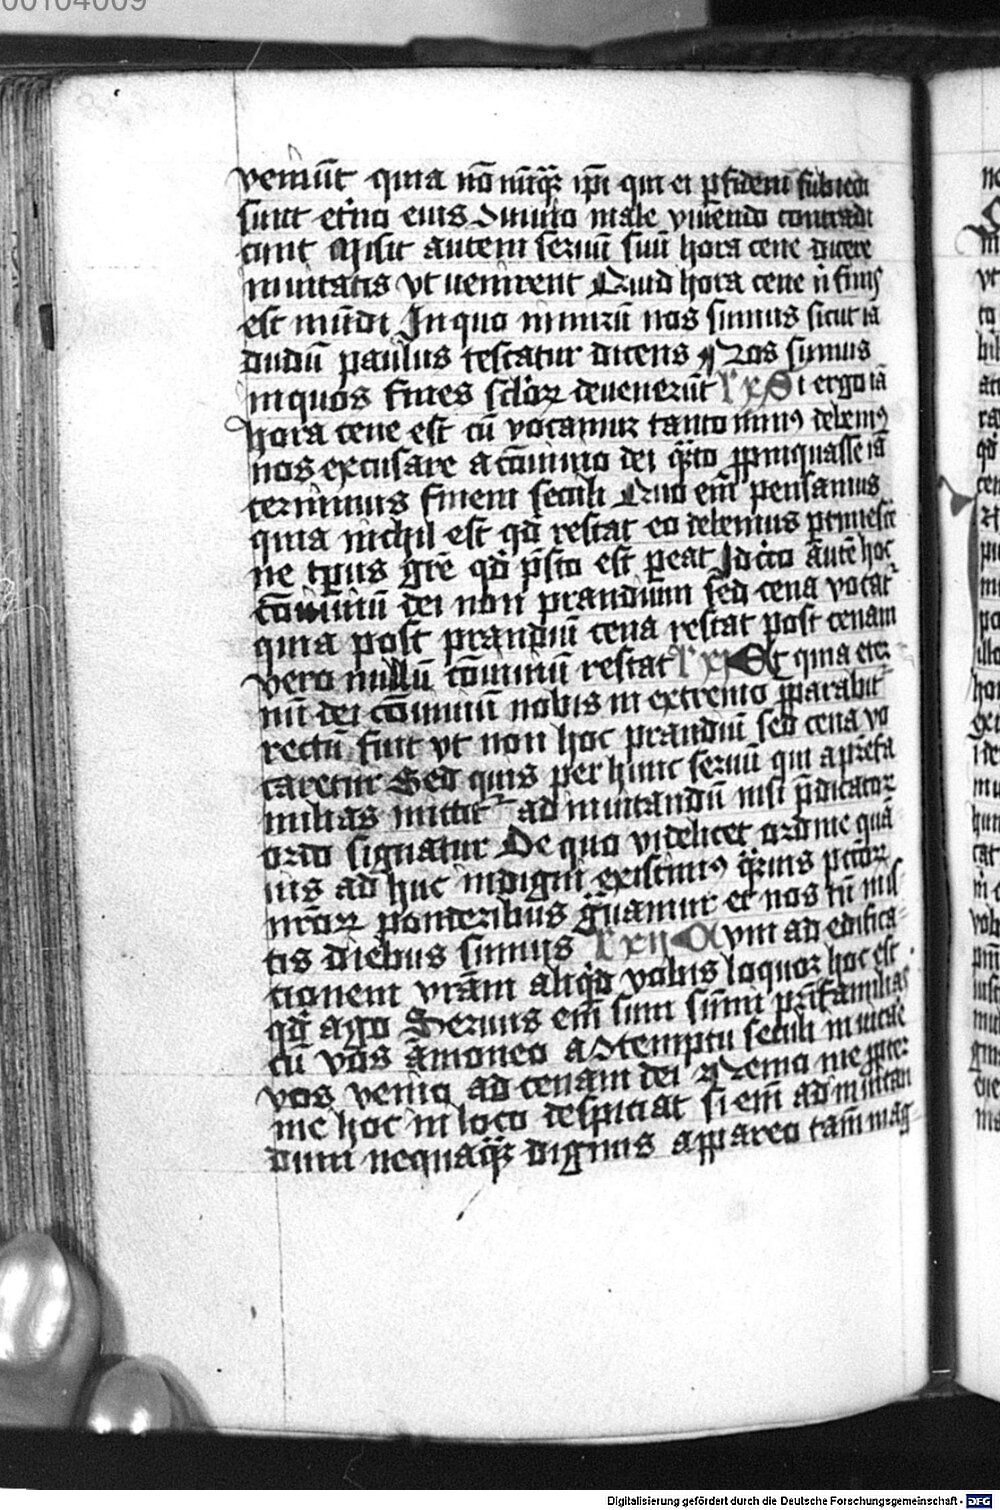 00104009
veniūt quia nō nūqȝ ipī qui ei p fidem subiecti
sunt eterno eius conuiuio male viuendo contradi
cunt Misit autem seruū suū hora cene dicere
inuitatis vt uenirent Quid hora cene nisi finis
est mūdi In quo nimirū nos sumus sicut iā
dudū paulus testatur dicens Nos sumus
in quos fines sclōrꝝ deuenerūt Lx Si ergo iā
hora cene est cū vocamur tanto minꝰ debemꝰ
nos excusare a cōuiuio dei qrto ppinquasse iā
cernimus finem seculi Quo em̄ pensamus
quia nichil est qd restat eo debemus ptimesce
ne tpus gre qd psto est peat Idcirco autē hoc
cōuiuiū dei non prandium sed cena vocat
quia post prandiū cena restat post cenam
vero nullū cōuiuiū restat Lxi Et quia eter
nū dei cōuiuiū nobis in extremo pparabit
rectū fuit vt non hoc prandiū sed cena vo
caretur Sed quis per hunc seruū qui a prefa
milias mittit ad inuitandū nisi pdicatorꝝ
ordo signatur De quo videlicet ordine quā
uis ad huc indigni existimꝰ quis pctōrꝝ
nrōrꝝ ponderibus g̃uamur et nos tn̄ in is
tis diebus sumus Lxii Cum ad edifica
tionem vrām aliqd vobis loquor hoc est
qd ago Seruus em̄ sum summi prisfamilias
cū vos āmoneo a 9temptu seculi inuitare
vos venio ad cenam dei Nemo me ppter
me hoc in loco despiciat si em̄ ad inuitan
dum nequaqȝ dignus appareo tam̄ mag
Digitalisierung gefördert durch die Deutsche Forschungsgemeinschaft - DFG